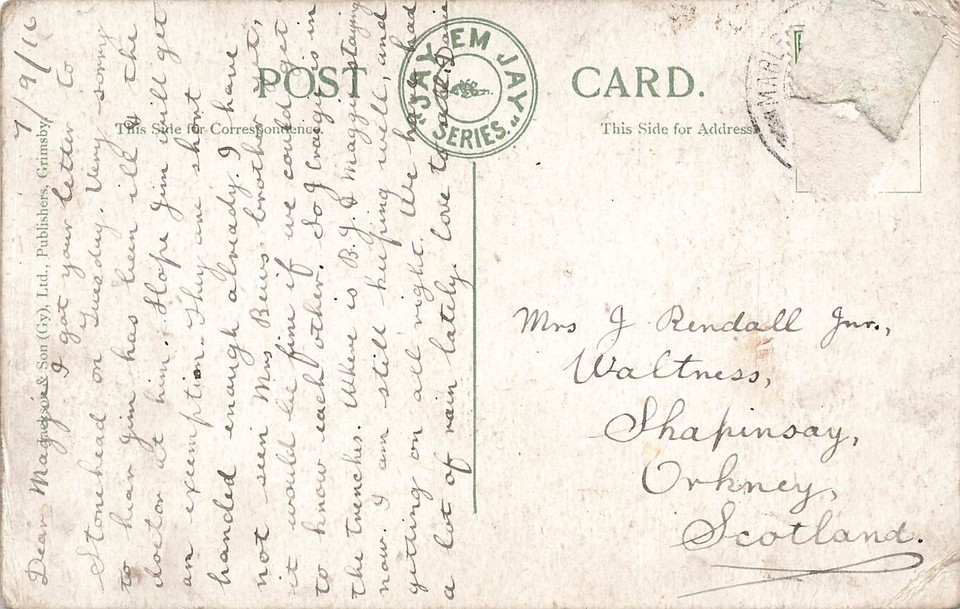 POST CARD.
"JAY EM JAY" SERIES.
This Side for Correspondence.
This Side for Address
Jackson & Son (Gy), Ltd., Publishers, Grimsby.
7/9/16
Dear Maggie I got your letter to
Stonehead on Tuesday. Very sorry
to hear Jim has been ill & the
doctor at him. Hope Jim will get
an exemption. They are short
handed enough already. I have
not seen Mrs Bews brother yet,
it would be fine if we could get
to know each other. So J Craigie is in
the trenches. Where is B. J. & Maggie staying
now. I am still keeping well, and
getting on all right. We have had
a lot of rain lately. Love to all
Mrs J Rendall Jnr.,
Waltness,
Shapinsay,
Orkney,
Scotland.